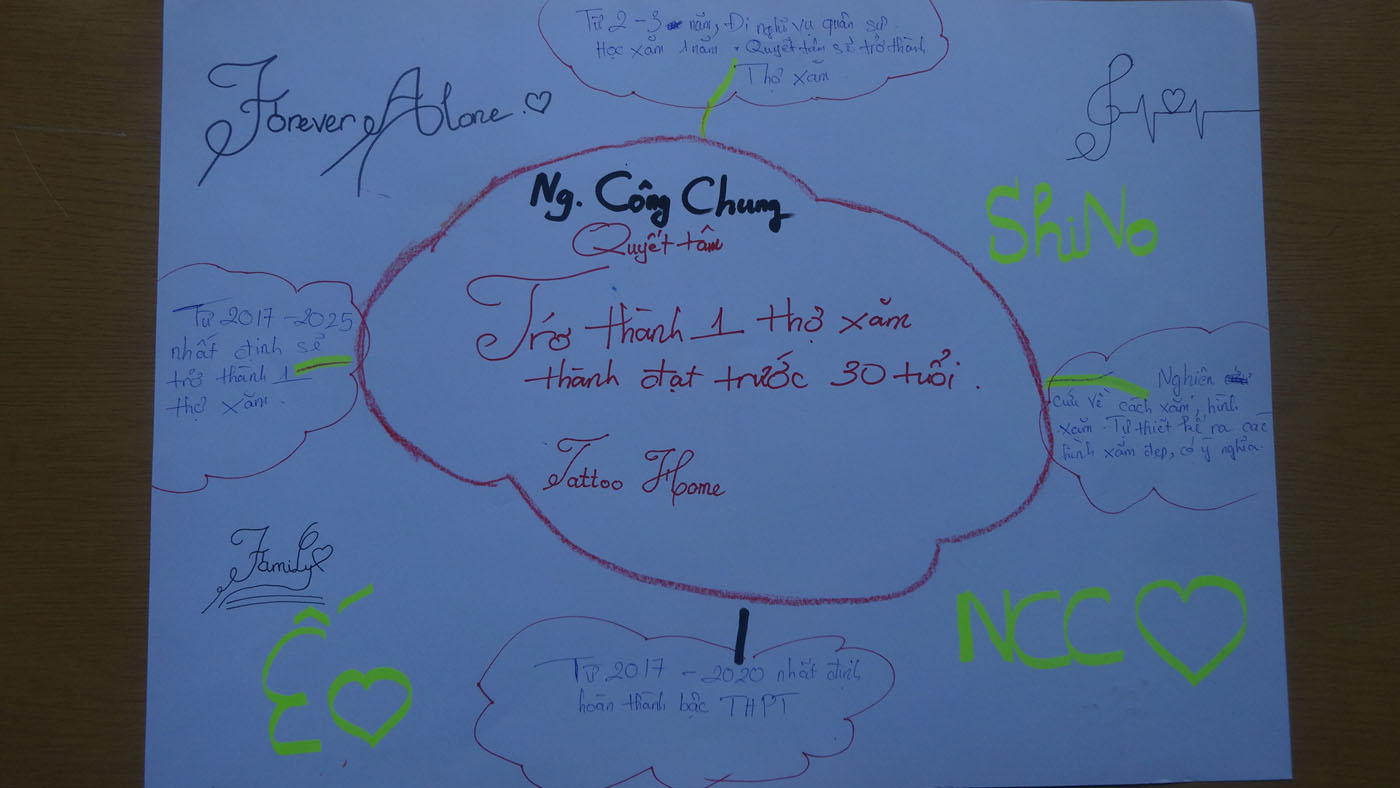 Từ 2-3 năm, Đi nghĩ vụ quân sự.
Học xăm 1 năm. Quyết tâm sẽ trở thành
Thợ xăm
Forever Alone.
Ng. Công Chung
Quyết tâm
Trở thành 1 thợ xăm
thành đạt trước 30 tuổi.
Tattoo Home
ShiNo
Từ 2017 - 2025
nhất định sẽ
trở thành 1
thợ xăm.
Nghiên
cứu về cách xăm, hình
xăm. Tự thiết kế ra các
hình xăm đẹp, có ý nghĩa.
Family
Ế
NCC
Từ 2017 - 2020 nhất định
hoàn thành bậc THPT